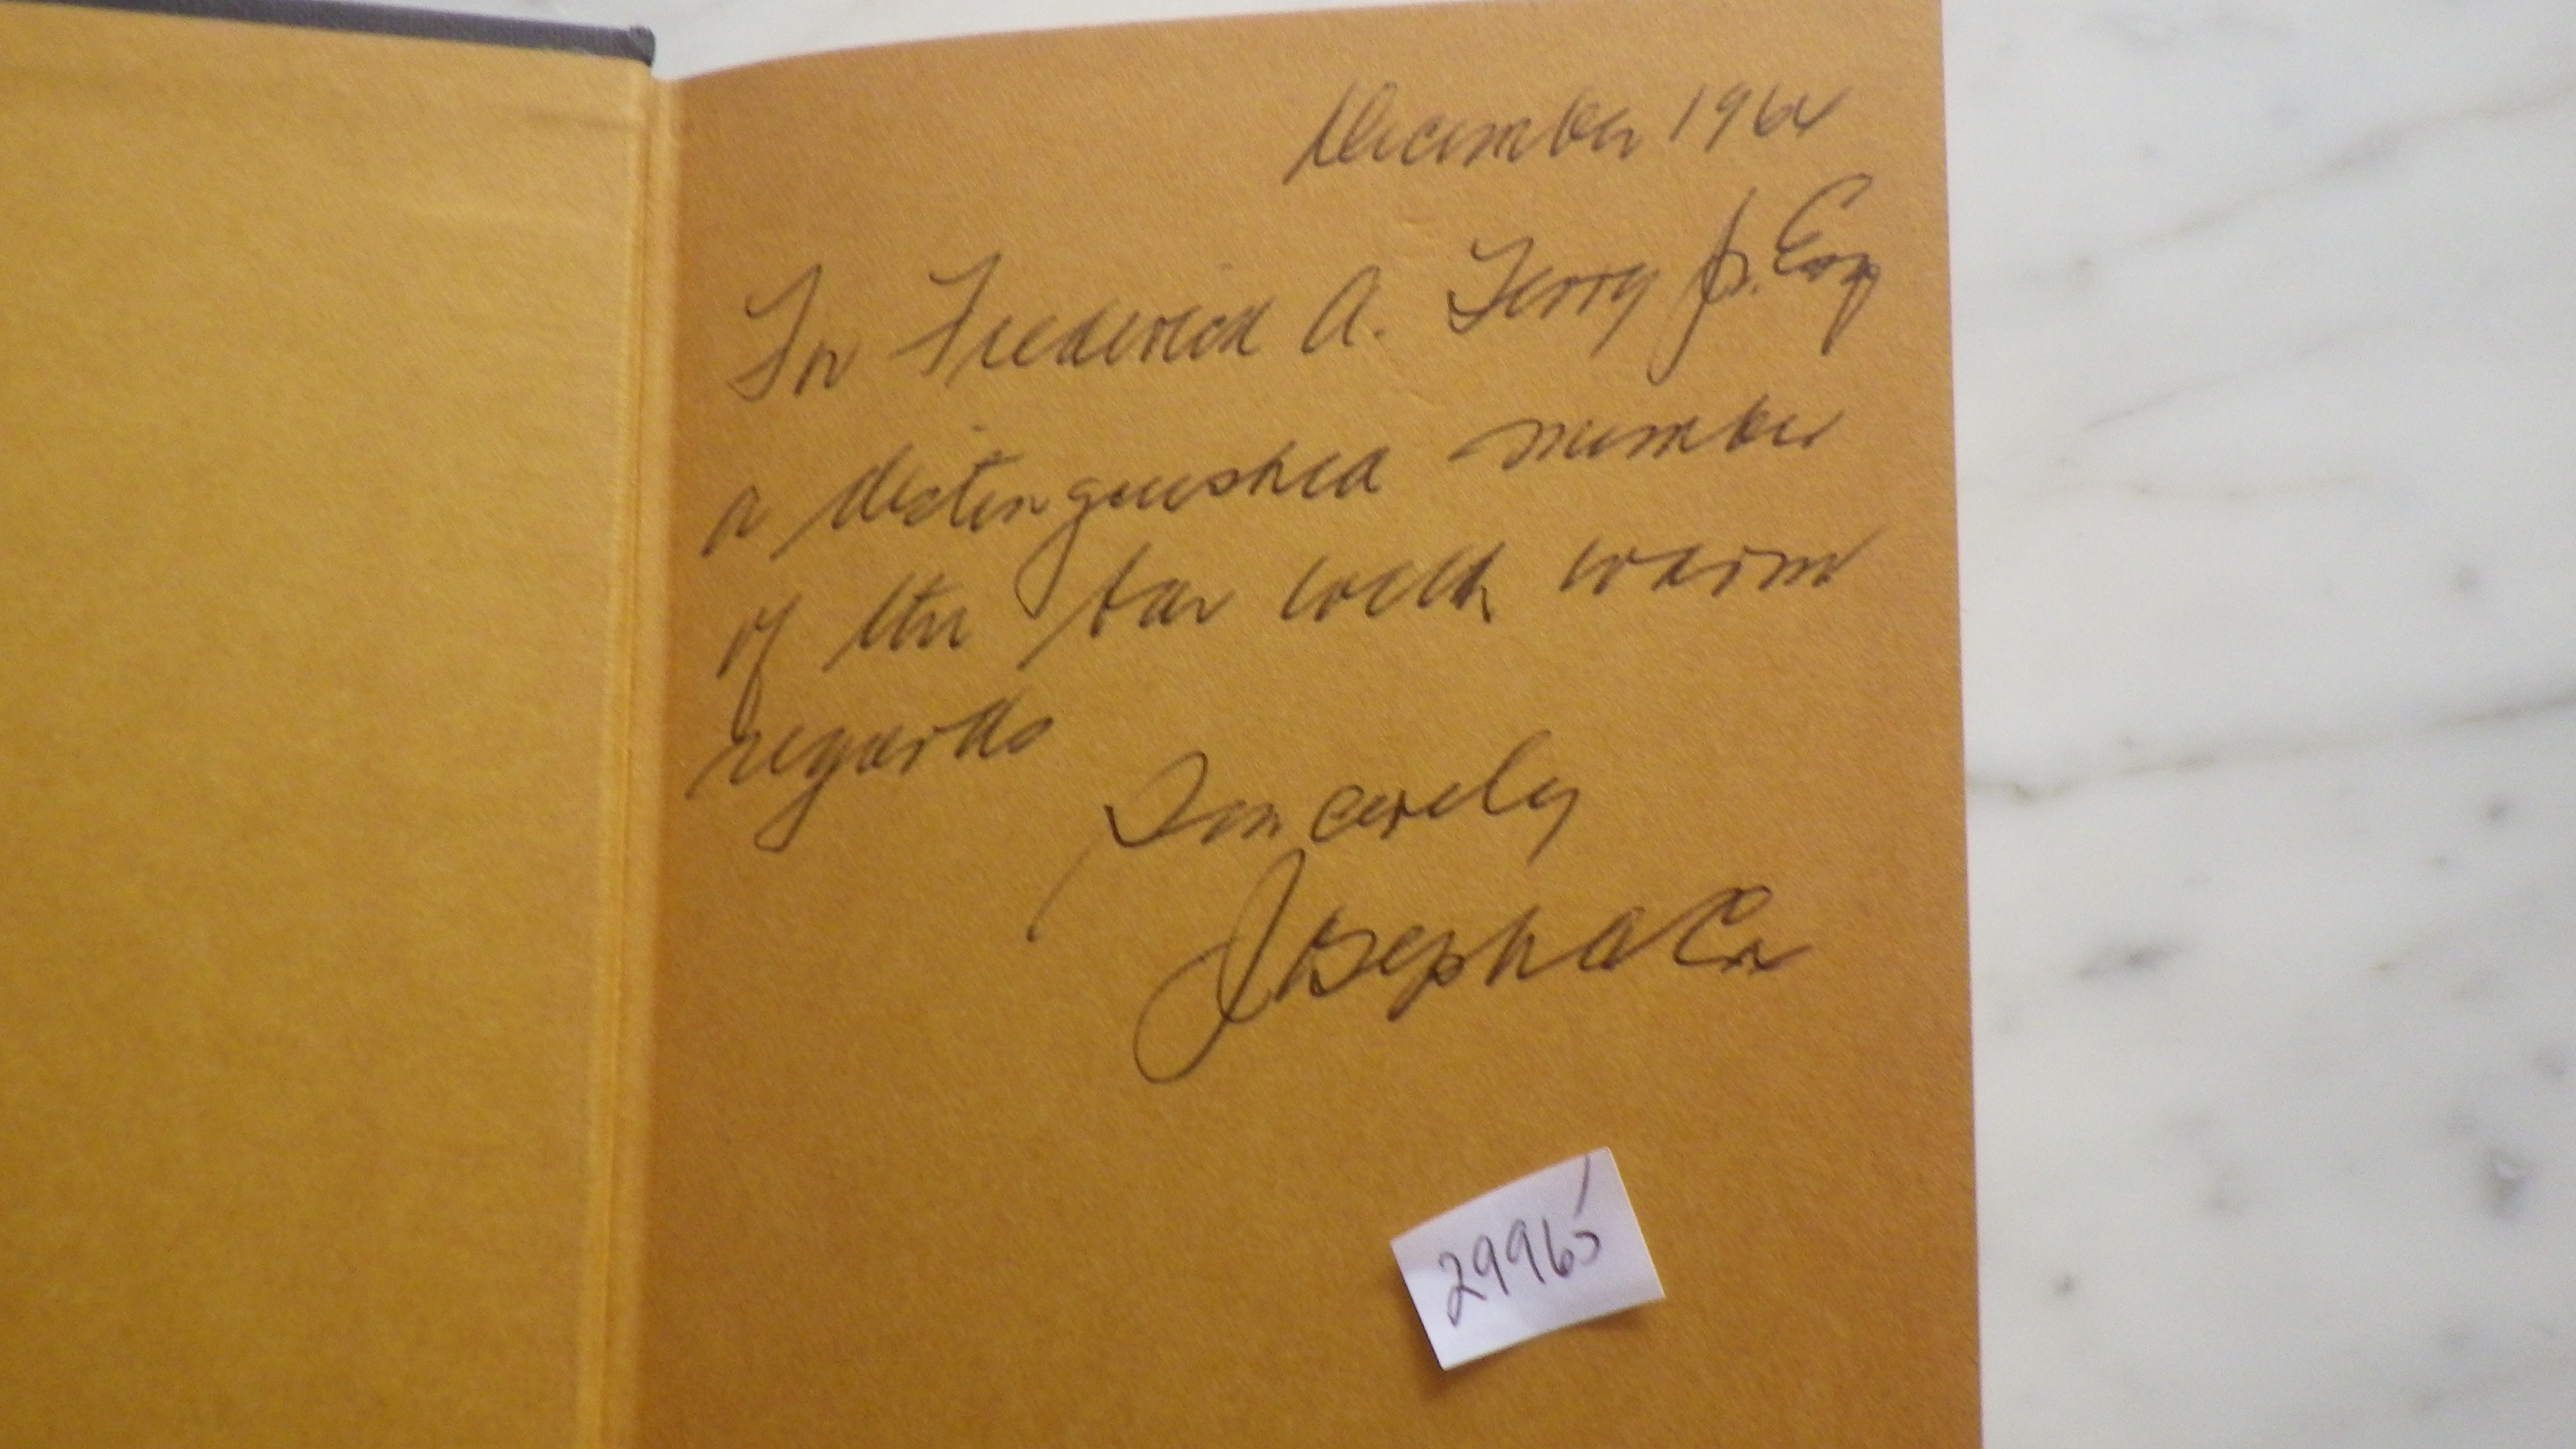 December 1964
For Frederick A. Terry Jr. Esq
a distinguished member
of the bar with warm
regards
Sincerely
Joseph A Cox
29965